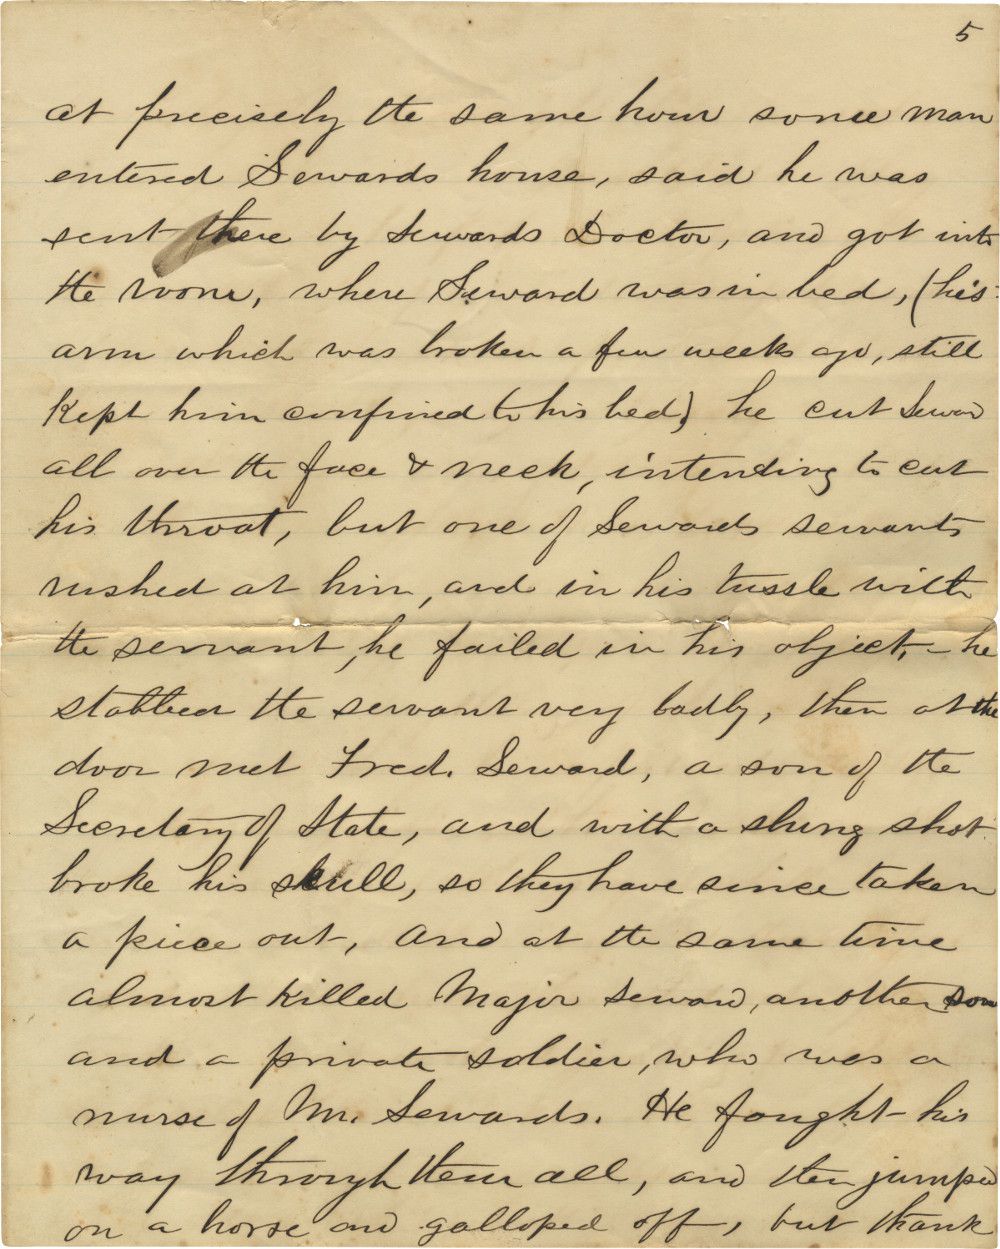 5
at precisely the same hour some man
entered Sewards house, said he was
sent there by Sewards Doctor, and got into
the room, where Seward was in bed, (his
arm which was broken a few weeks ago, still
Kept him confined to his bed) he cut Seward
all over the face & neck, intending to cut
his throat, but one of Sewards servants
rushed at him, and in his tussle with
the servant, he failed in his object, - he
stabbed the servant very badly, then at the
door met Fred. Seward, a son of the
Secretary of State, and with a slung shot
broke his skull, so they have since taken
a piece out, and at the same time
almost killed Major Seward, another son
and a private soldier, who was a
nurse of Mr. Sewards. He fought his
way through them all, and then jumped
on a horse and galloped off, but thank